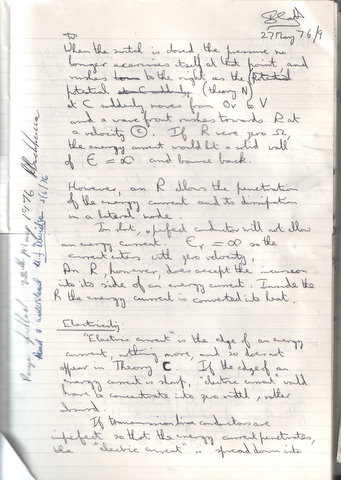 27 May 76/9
to
When the switch is closed the pressure no
longer exercises itself at that point and
rushes to the right as the
potential suddenly (theory N)
at C suddenly moves from 0v to V
and a wavefront rushes towards R at
a velocity C. If R were zero Ω,
the energy current would hit a solid wall
of ε = ∞ and bounce back.
However, an R allows the penetration
of the energy current and its dissipation
in a lateral mode.
In fact, a perfect conductor will not allow
an energy current. εr = ∞ so the
current enters with zero velocity.
An R, however, does accept the incursion
into its side of an energy current. Inside the
R the energy current is converted into heat.
Electricity.
"Electric current" is the edge of an energy
current, nothing more, and so does not
appear in Theory C. If the edge of an
energy current is sharp, "electric current" would
have to concentrate into zero width, rather
absurd.
If transmission line conductors are
imperfect so that the energy current penetrates,
the "electric current" is spread down into
28th May 1976
Read & understood
2/6/76